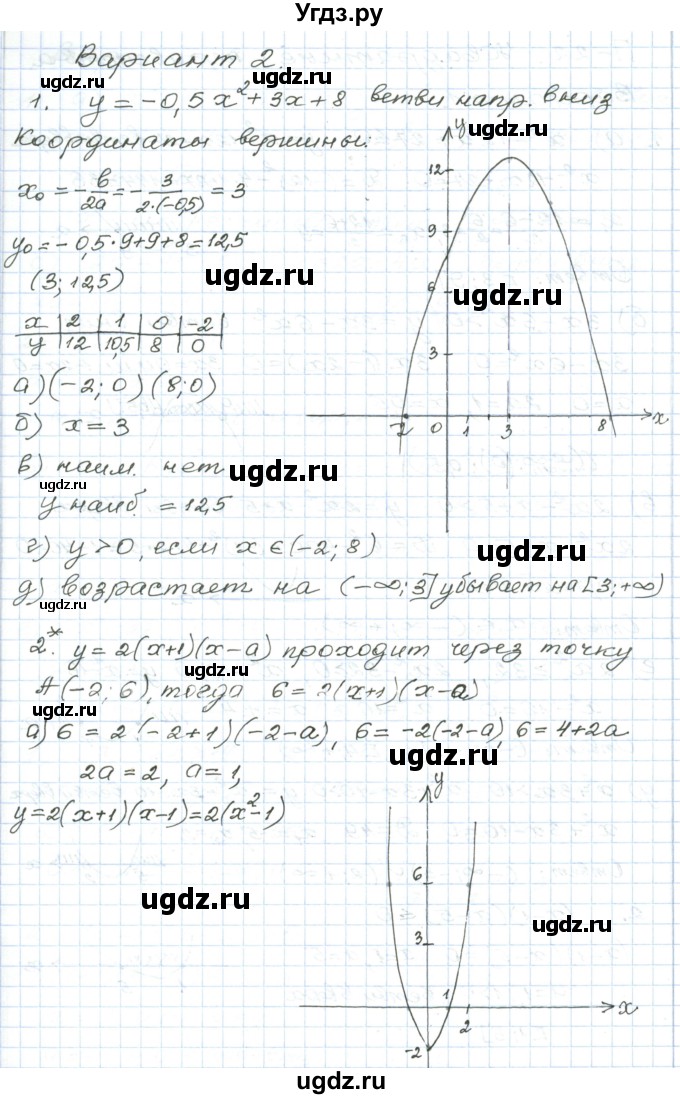 Угдз.ру
Вариант 2.
ugdz.ru ugdz.ru
1. y = -0,5x² + 3x + 8 ветви напр. вниз
ugdz.ru
Координаты вершины:
y
x₀ = -b/2a = -3/2·(-0,5) = 3
12
y₀ = -0,5·9+9+8=12,5
9
(3; 12,5)
ugdz.ru
6
ugdz.ru
x | 2 | 1 | 0 | -2
y | 12 | 10,5 | 8 | 0
3
а) (-2; 0) (8; 0)
ugdz.ru
б) x = 3
-2 0 1 3 8 x
в) наим. нет
ugdz.ru
ugdz.ru
y наиб. = 12,5
г) y > 0, если x ∈ (-2; 8)
ugdz.ru
д) возрастает на (-∞; 3] убывает на [3; +∞)
ugdz.ru
2.* y = 2(x+1)(x-a) проходит через точку
ugdz.ru
A(-2; 6), тогда 6 = 2(x+1)(x-a)
ugdz.ru
а) 6 = 2(-2+1)(-2-a), 6 = -2(-2-a), 6 = 4+2a
ugdz.ru
2a = 2, a = 1,
y
y=2(x+1)(x-1)=2(x²-1)
6
ugdz.ru
ugdz.ru
3
1
2 x
-2
ugdz.ru